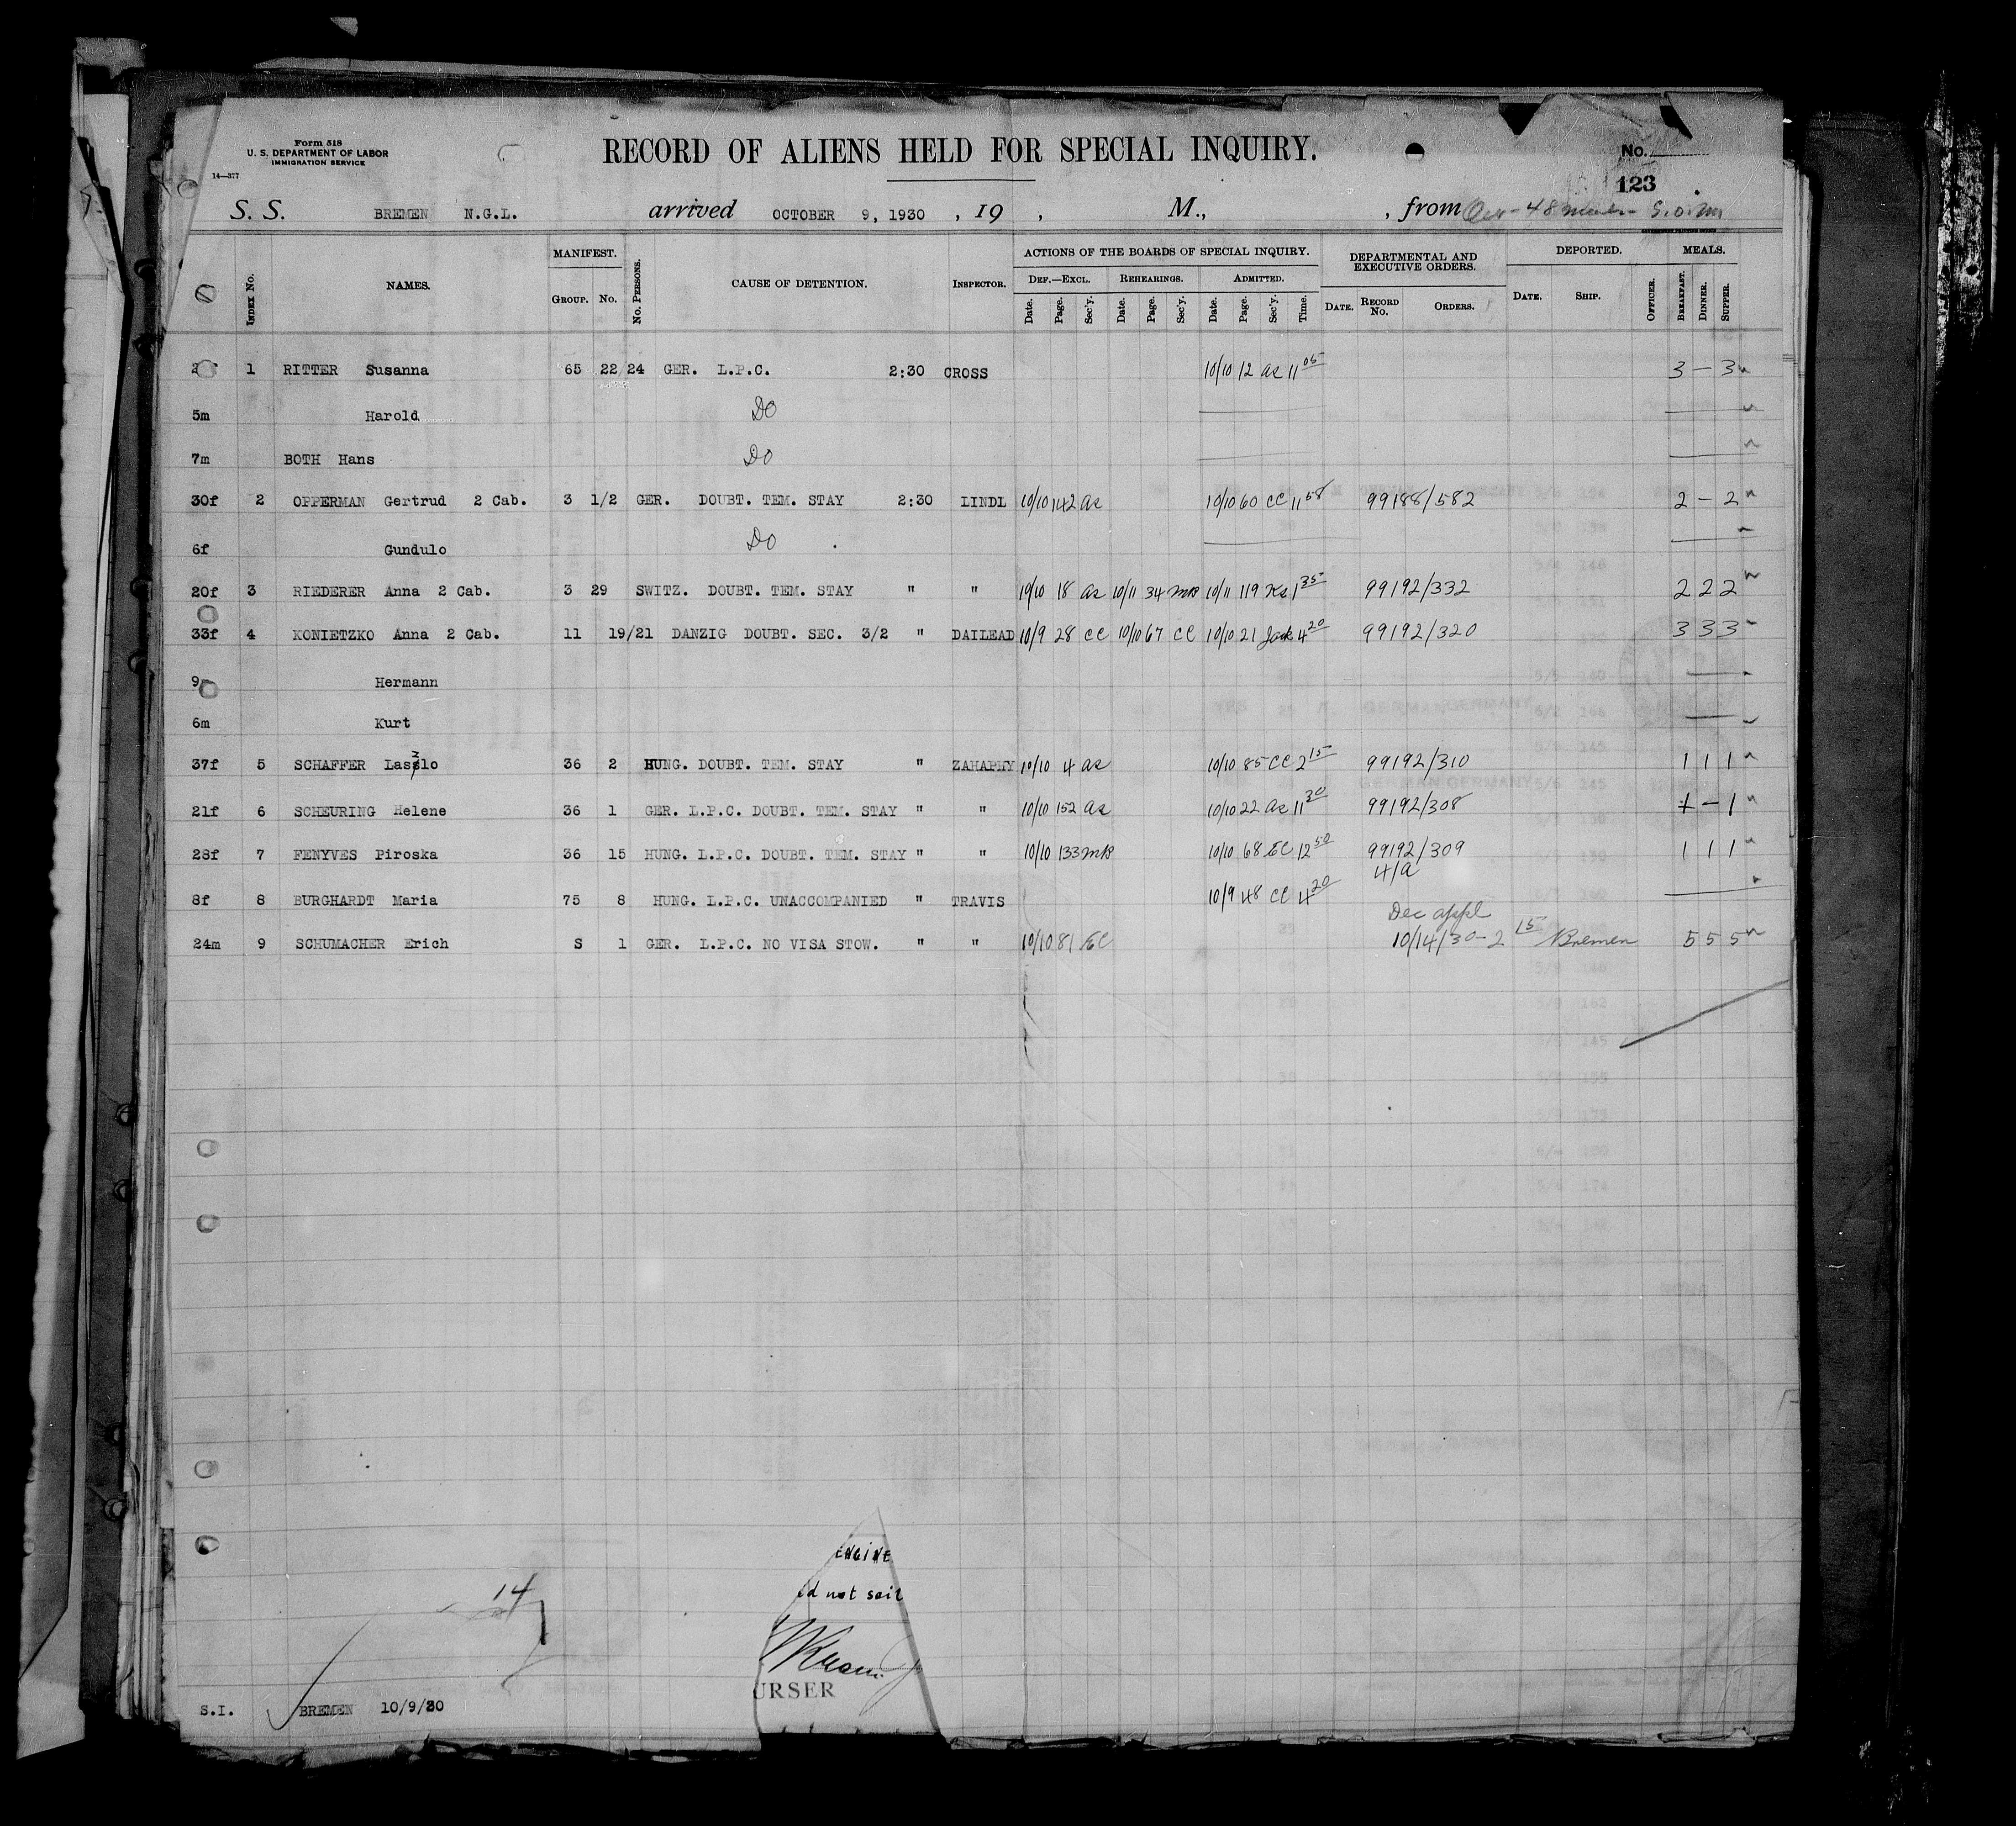 Form 518
U. S. DEPARTMENT OF LABOR
IMMIGRATION SERVICE
14—377
RECORD OF ALIENS HELD FOR SPECIAL INQUIRY.
No.
123
S. S. BREMEN N.G.L. arrived OCTOBER 9, 1930 , 19 , M., , from
MANIFEST. ACTIONS OF THE BOARDS OF SPECIAL INQUIRY. DEPARTMENTAL AND EXECUTIVE ORDERS. DEPORTED. MEALS.
Index No. NAMES. Group. No. No. Persons. CAUSE OF DETENTION. Inspector. Def.—Excl. Rehearings. Admitted.
Date. Page. Sec'y. Date. Page. Sec'y. Date. Page. Sec'y. Time. Date. Record No. Orders. Date. Ship. Officer. Breakfast. Dinner. Supper.
1 RITTER Susanna 65 22/24 GER. L.P.C. 2:30 CROSS 10/10 12 as 11 05 3 — 3
5m Harold Do
7m BOTH Hans Do
30f 2 OPPERMAN Gertrud 2 Cab. 3 1/2 GER. DOUBT. TEM. STAY 2:30 LINDL 10/10 142 as 10/10 60 CC 11 58 99188/582 2 — 2
6f Gundulo Do
20f 3 RIEDERER Anna 2 Cab. 3 29 SWITZ. DOUBT. TEM. STAY " " 10/10 18 as 10/11 34 MB 10/11 119 Ks 1 35 99192/332 2 2 2
33f 4 KONIETZKO Anna 2 Cab. 11 19/21 DANZIG DOUBT. SEC. 3/2 " DAILEAD 10/9 28 CC 10/10 67 CC 10/10 21 4 20 99192/320 3 3 3
9 Hermann
6m Kurt
37f 5 SCHAFFER Laszlo 36 2 HUNG. DOUBT. TEM. STAY " ZAHAPHY 10/10 4 as 10/10 85 CC 2 15 99192/310 1 1 1
21f 6 SCHEURING Helene 36 1 GER. L.P.C. DOUBT. TEM. STAY " " 10/10 152 as 10/10 22 as 11 30 99192/308 1 — 1
28f 7 FENYVES Piroska 36 15 HUNG. L.P.C. DOUBT. TEM. STAY " " 10/10 133 MB 10/10 68 EC 12 50 99192/309 1 1 1
4/a
8f 8 BURGHARDT Maria 75 8 HUNG. L.P.C. UNACCOMPANIED " TRAVIS 10/9 48 CC 4 20
Dec appl
24m 9 SCHUMACHER Erich S 1 GER. L.P.C. NO VISA STOW. " " 10/10 81 EC 10/14/30 - 2 15 Bremen 5 5 5
ENGINE
14
d not sail
URSER
S.I. BREMEN 10/9/30